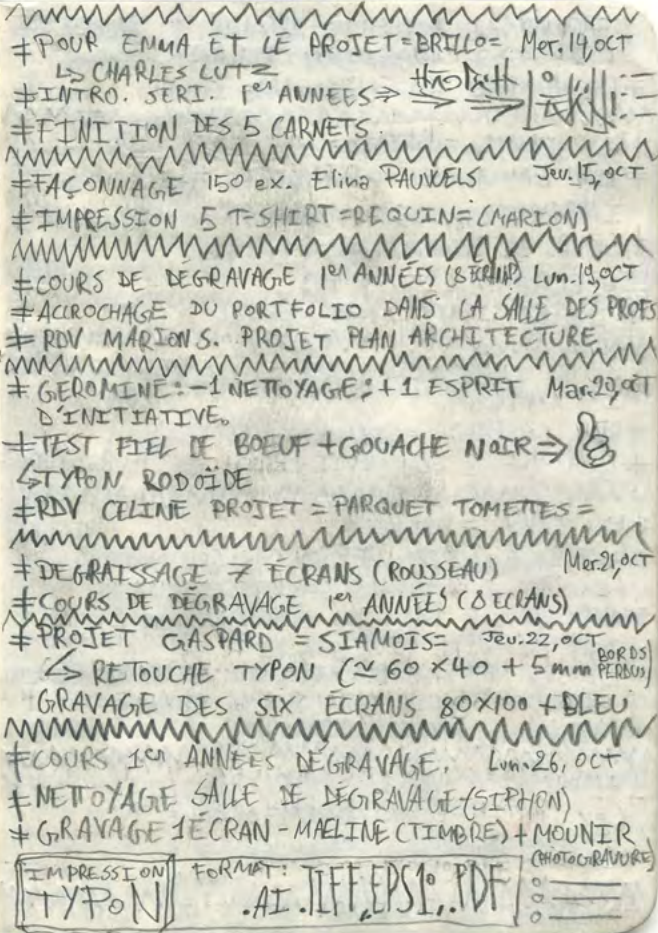 ‡POUR EMMA ET LE PROJET=BRILLO= Mer.14,OCT
↳ CHARLES LUTZ
‡INTRO. SERI. 1er ANNEES⇒
‡FINITION DES 5 CARNETS.
‡FAÇONNAGE 150 ex. Elina PAUWELS Jeu.15,OCT
‡IMPRESSION 5 T-SHIRT=REQUIN=(MARION)
‡COURS DE DÉGRAVAGE 1er ANNÉES (8 ECRANS) Lun.19,OCT
‡ACCROCHAGE DU PORTFOLIO DANS LA SALLE DES PROFS
‡RDV MARION S. PROJET PLAN ARCHITECTURE
‡GEROMINE:-1 NETTOYAGE:+1 ESPRIT Mar.20,OCT
D'INITIATIVE.
‡TEST FIEL DE BOEUF+GOUACHE NOIR⇒
↳TYPON RODOÏDE
‡RDV CELINE PROJET=PARQUET TOMETTES=
‡DEGRAISSAGE 7 ÉCRANS (ROUSSEAU) Mer.21,OCT
‡COURS DE DÉGRAVAGE 1er ANNÉES (8 ECRANS)
‡PROJET GASPARD =SIAMOIS= Jeu.22,OCT
↳ RETOUCHE TYPON (≃ 60×40 + 5mm BORDS PERDUS)
GRAVAGE DES SIX ÉCRANS 80X100 + BLEU
‡COURS 1er ANNÉES DÉGRAVAGE. Lun.26,OCT
‡NETTOYAGE SALLE DE DÉGRAVAGE(SIPHON)
‡GRAVAGE 1ÉCRAN-MAELINE(TIMBRE)+MOUNIR
(PHOTOGRAVURE)
IMPRESSION
TYPON
FORMAT:
.AI .TIFF,.EPS1°,.PDF